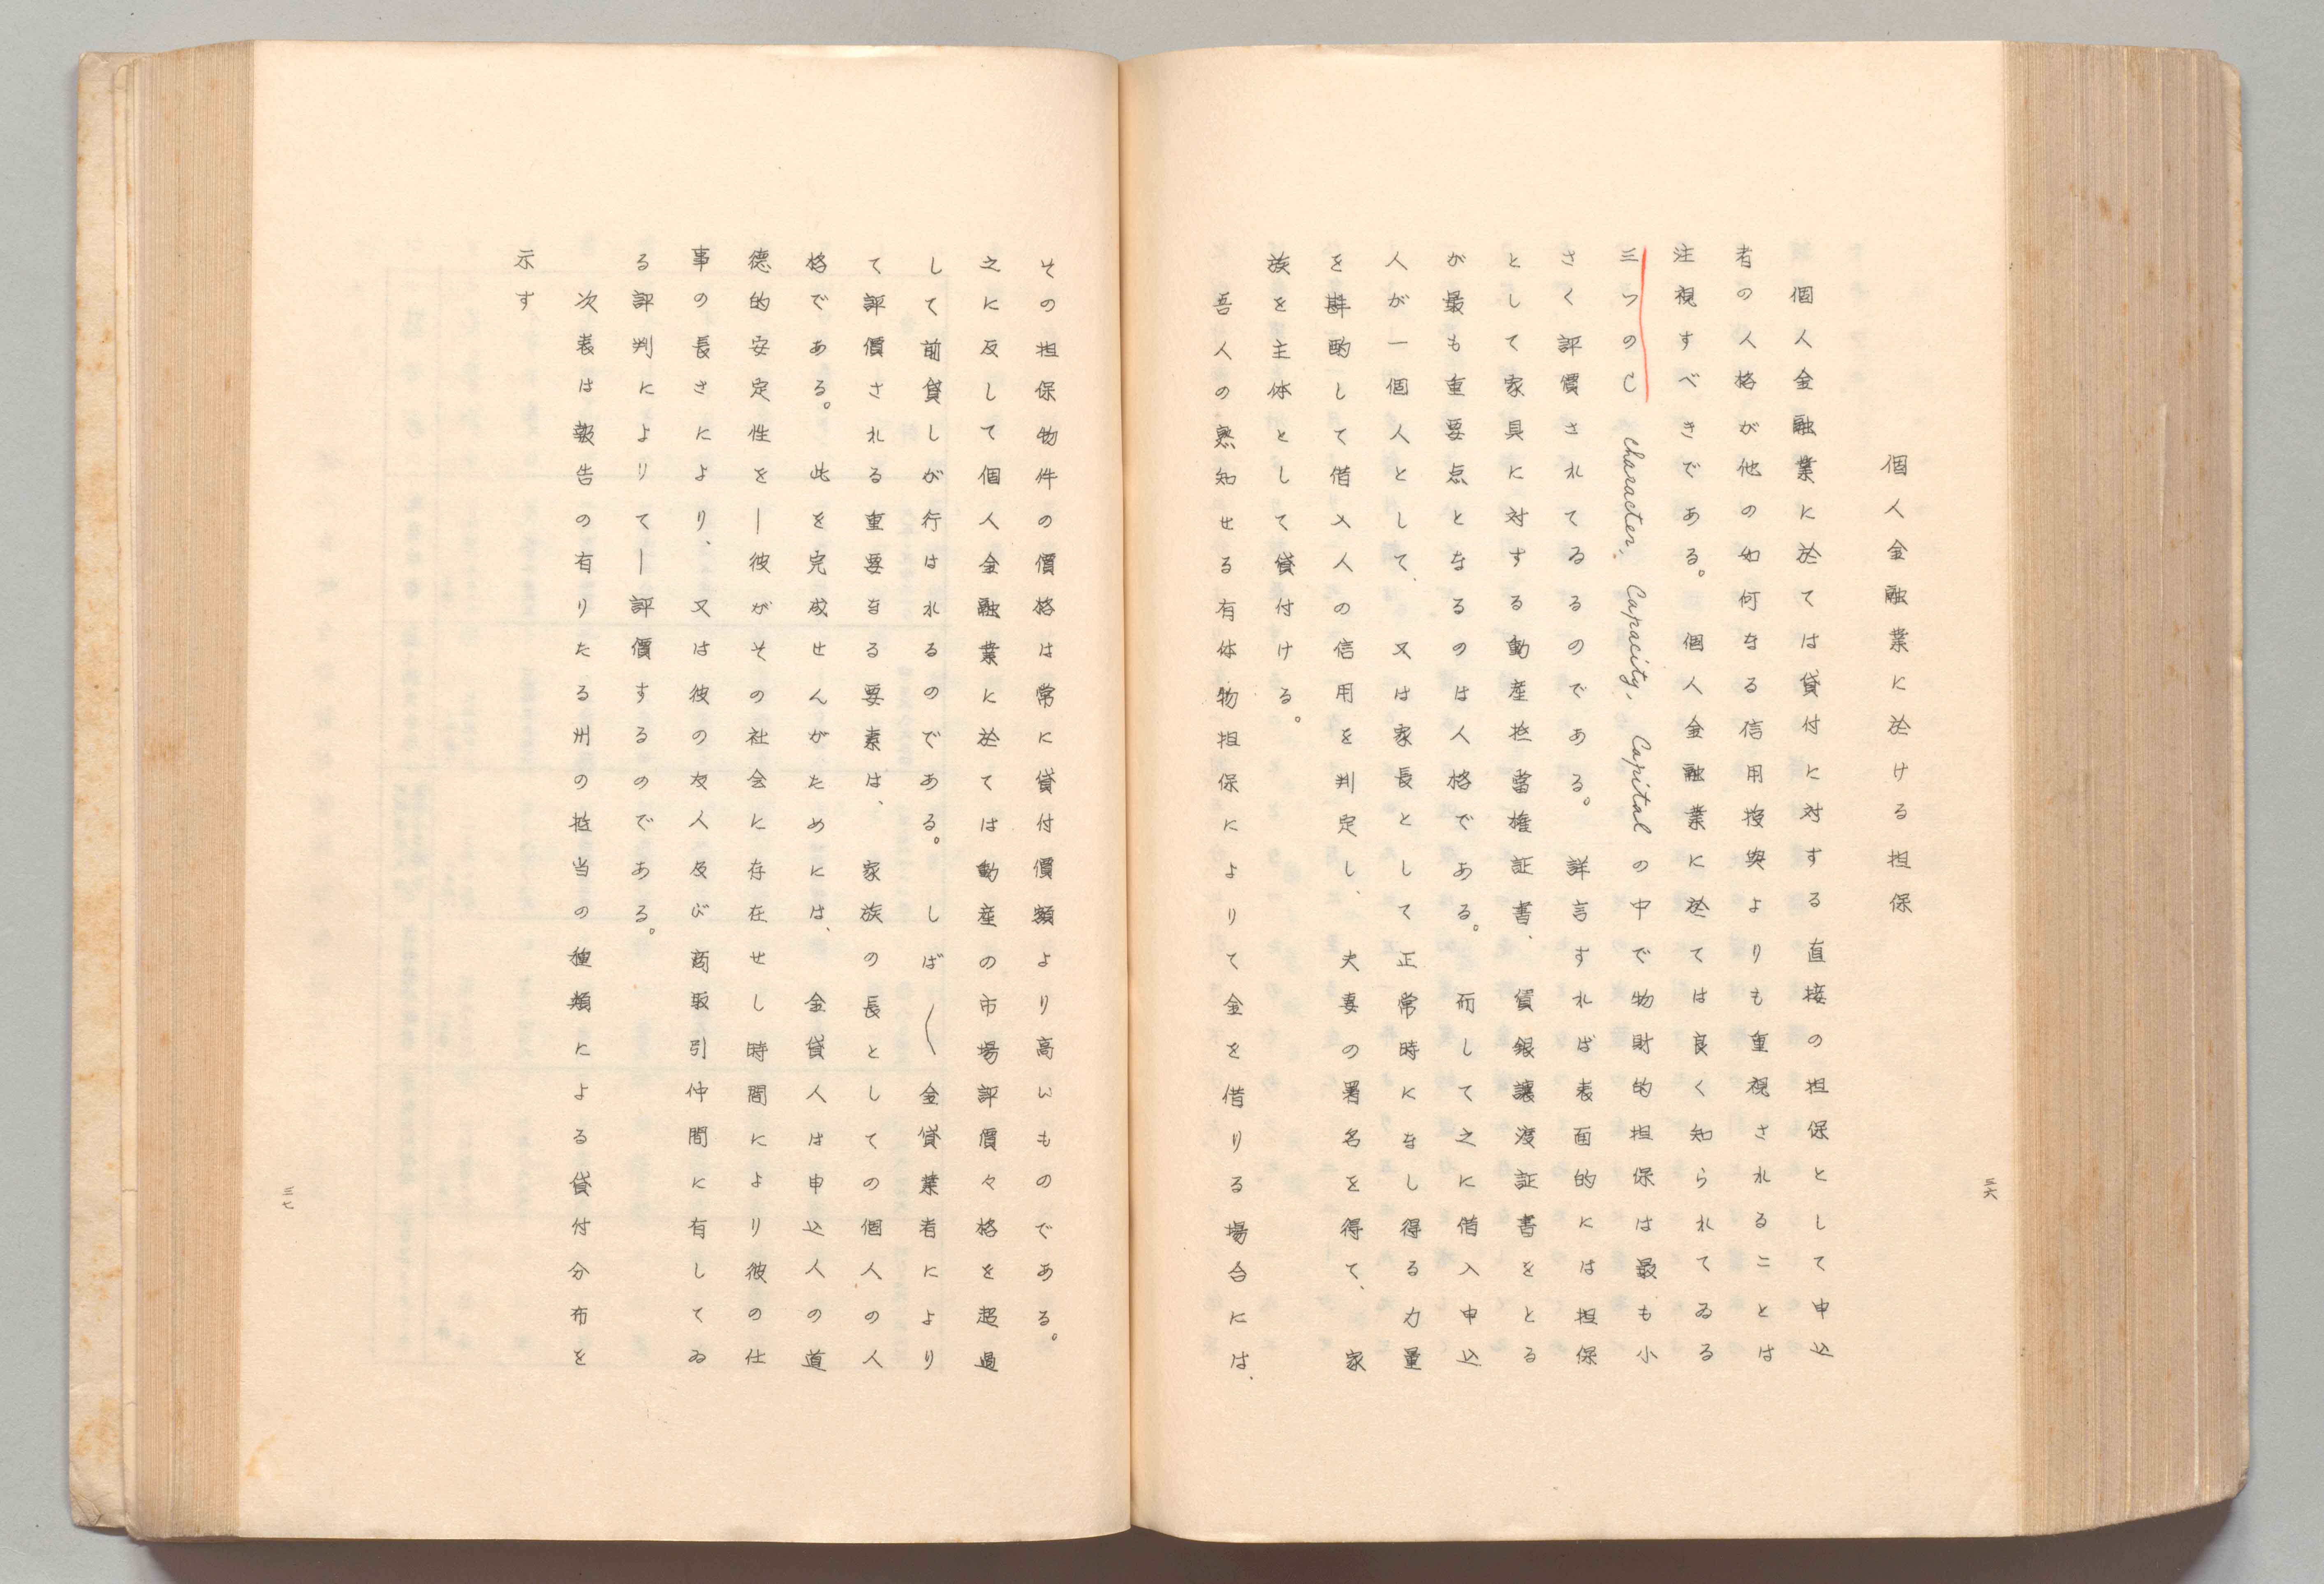 個人金融業に於ける担保
個人金融業に於ては貸付に対する直接の担保として申込
者の人格が他の如何なる信用授與よりも重視されることは
注視すべきである。個人金融業に於ては良く知られてゐる
三つのC Character, Capacity, Capital の中で物財的担保は最も小
さく評價されてゐるのである。詳言すれば表面的には担保
として家具に対する動産抵當権証書、賃銀譲渡証書をとる
が最も重要点となるのは人格である。而して之に借入申込
人が一個人として、又は家長として正常時になし得る力量
を斟酌して借入人の信用を判定し、夫妻の署名を得て、家
族を主体として貸付ける。
吾人の熟知せる有体物担保によりて金を借りる場合には、
三六
その担保物件の價格は常に貸付價額より高いものである。
之に反して個人金融業に於ては動産の市場評價々格を超過
して前貸しが行はれるのである。しば〱金貸業者により
て評價される重要なる要素は、家族の長としての個人の人
格である。此を完成せんがためには、金貸人は申込人の道
徳的安定性を―彼がその社会に存在せし時間により彼の仕
事の長さにより、又は彼の友人及び商取引仲間に有してゐ
る評判によりて―評價するのである。
次表は報告の有りたる州の抵当の種類による貸付分布を
示す
三七